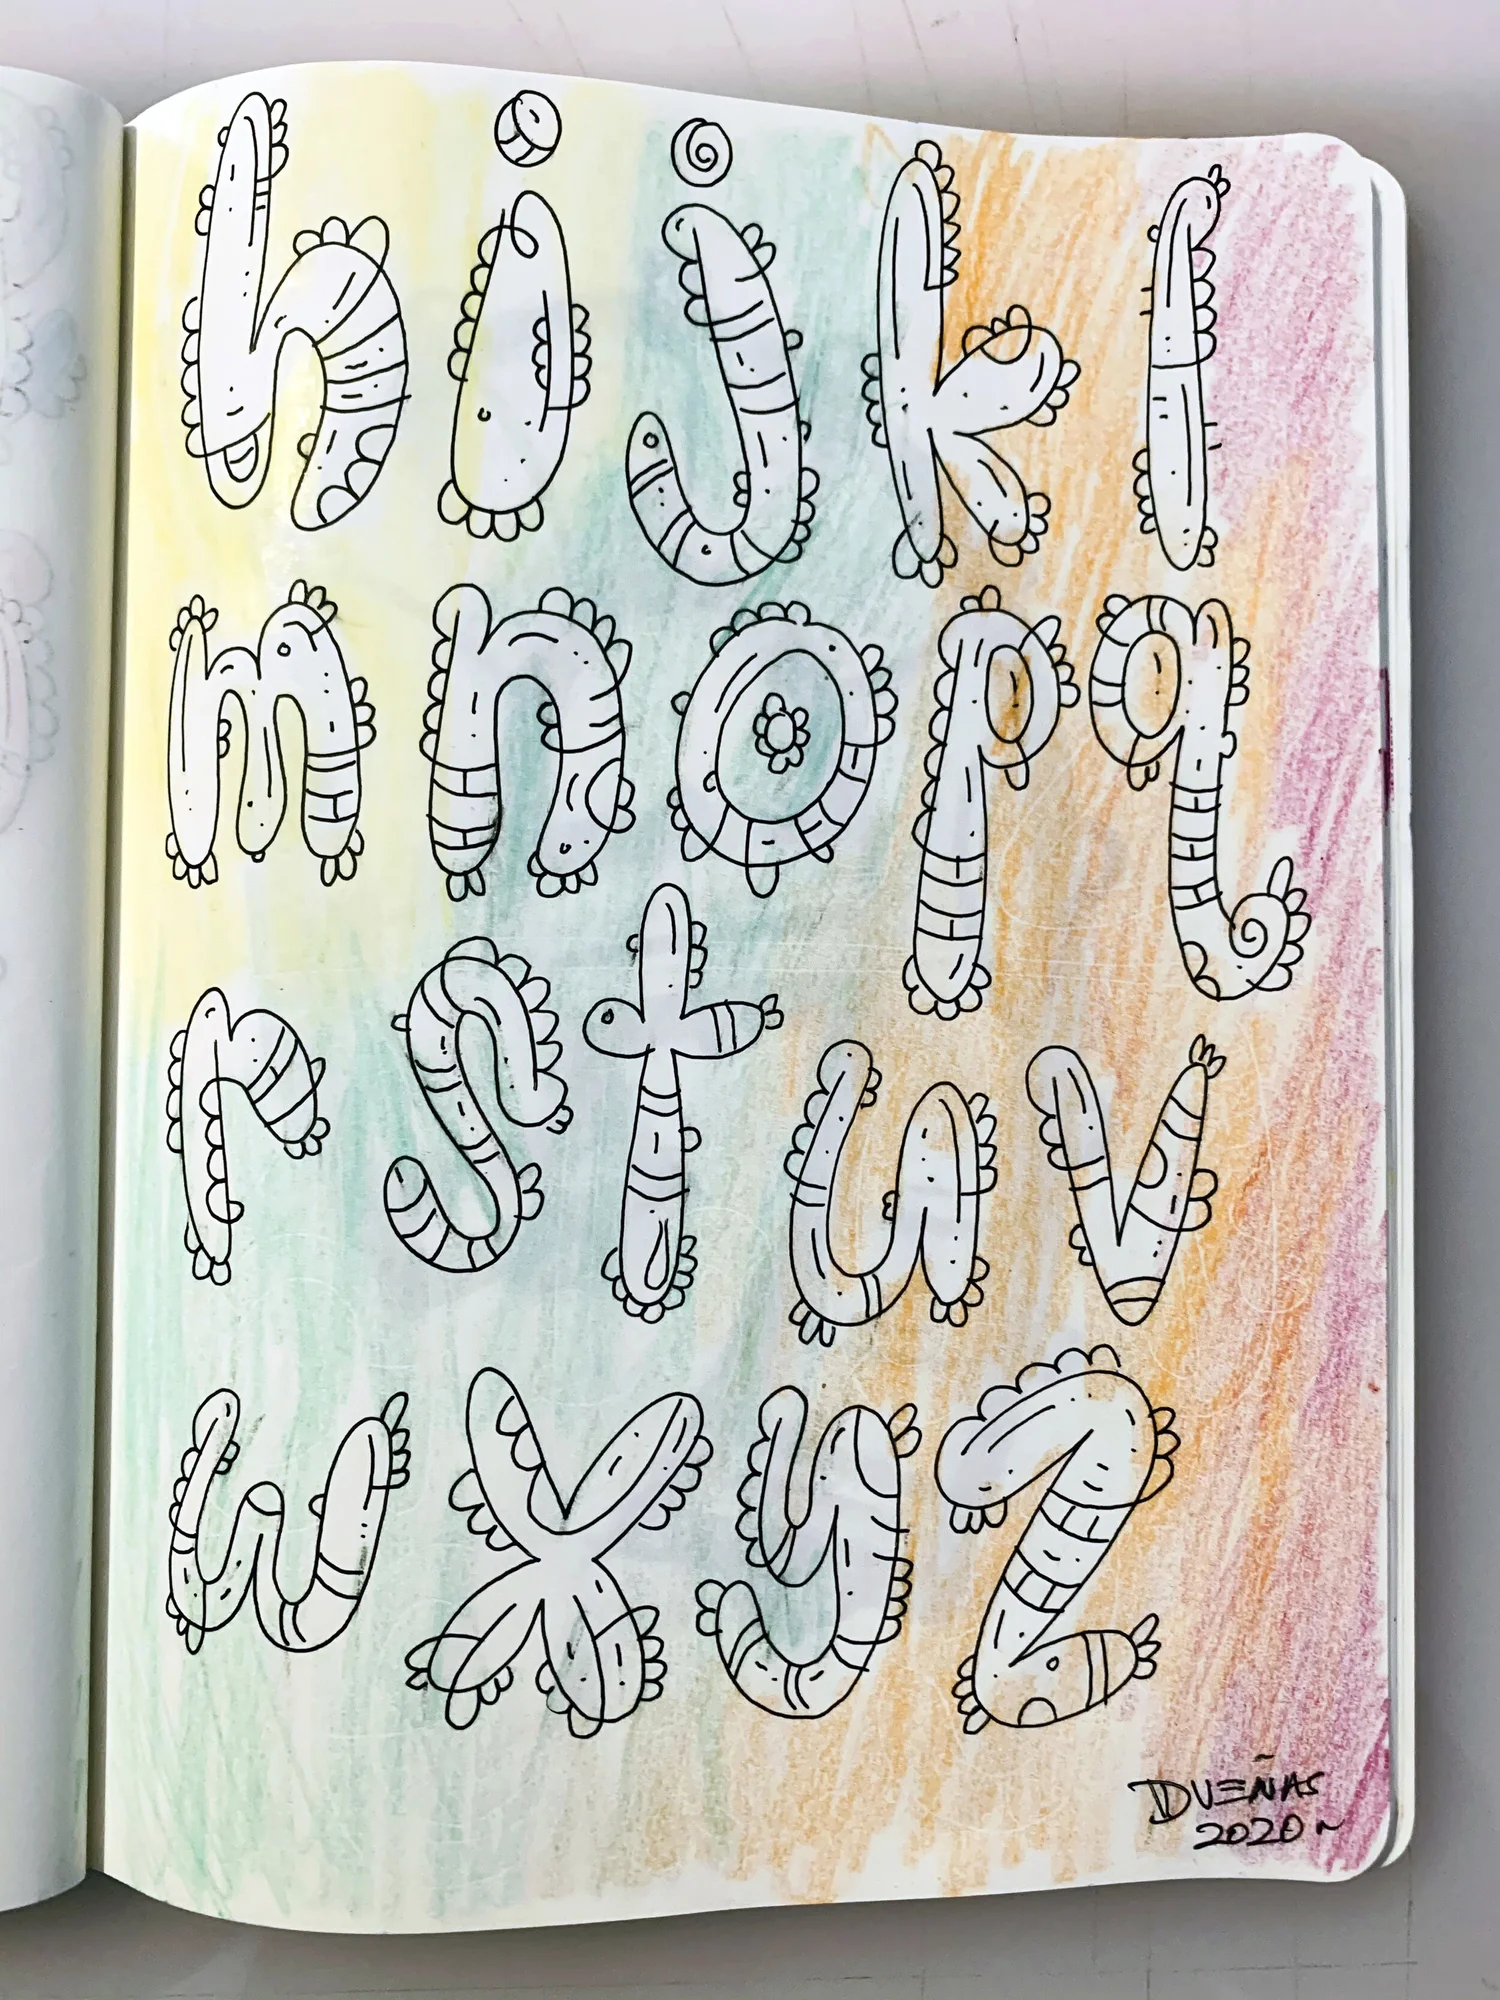 h i j k l
m n o p q
r s t u v
w x y z
DUEÑAS
2020~